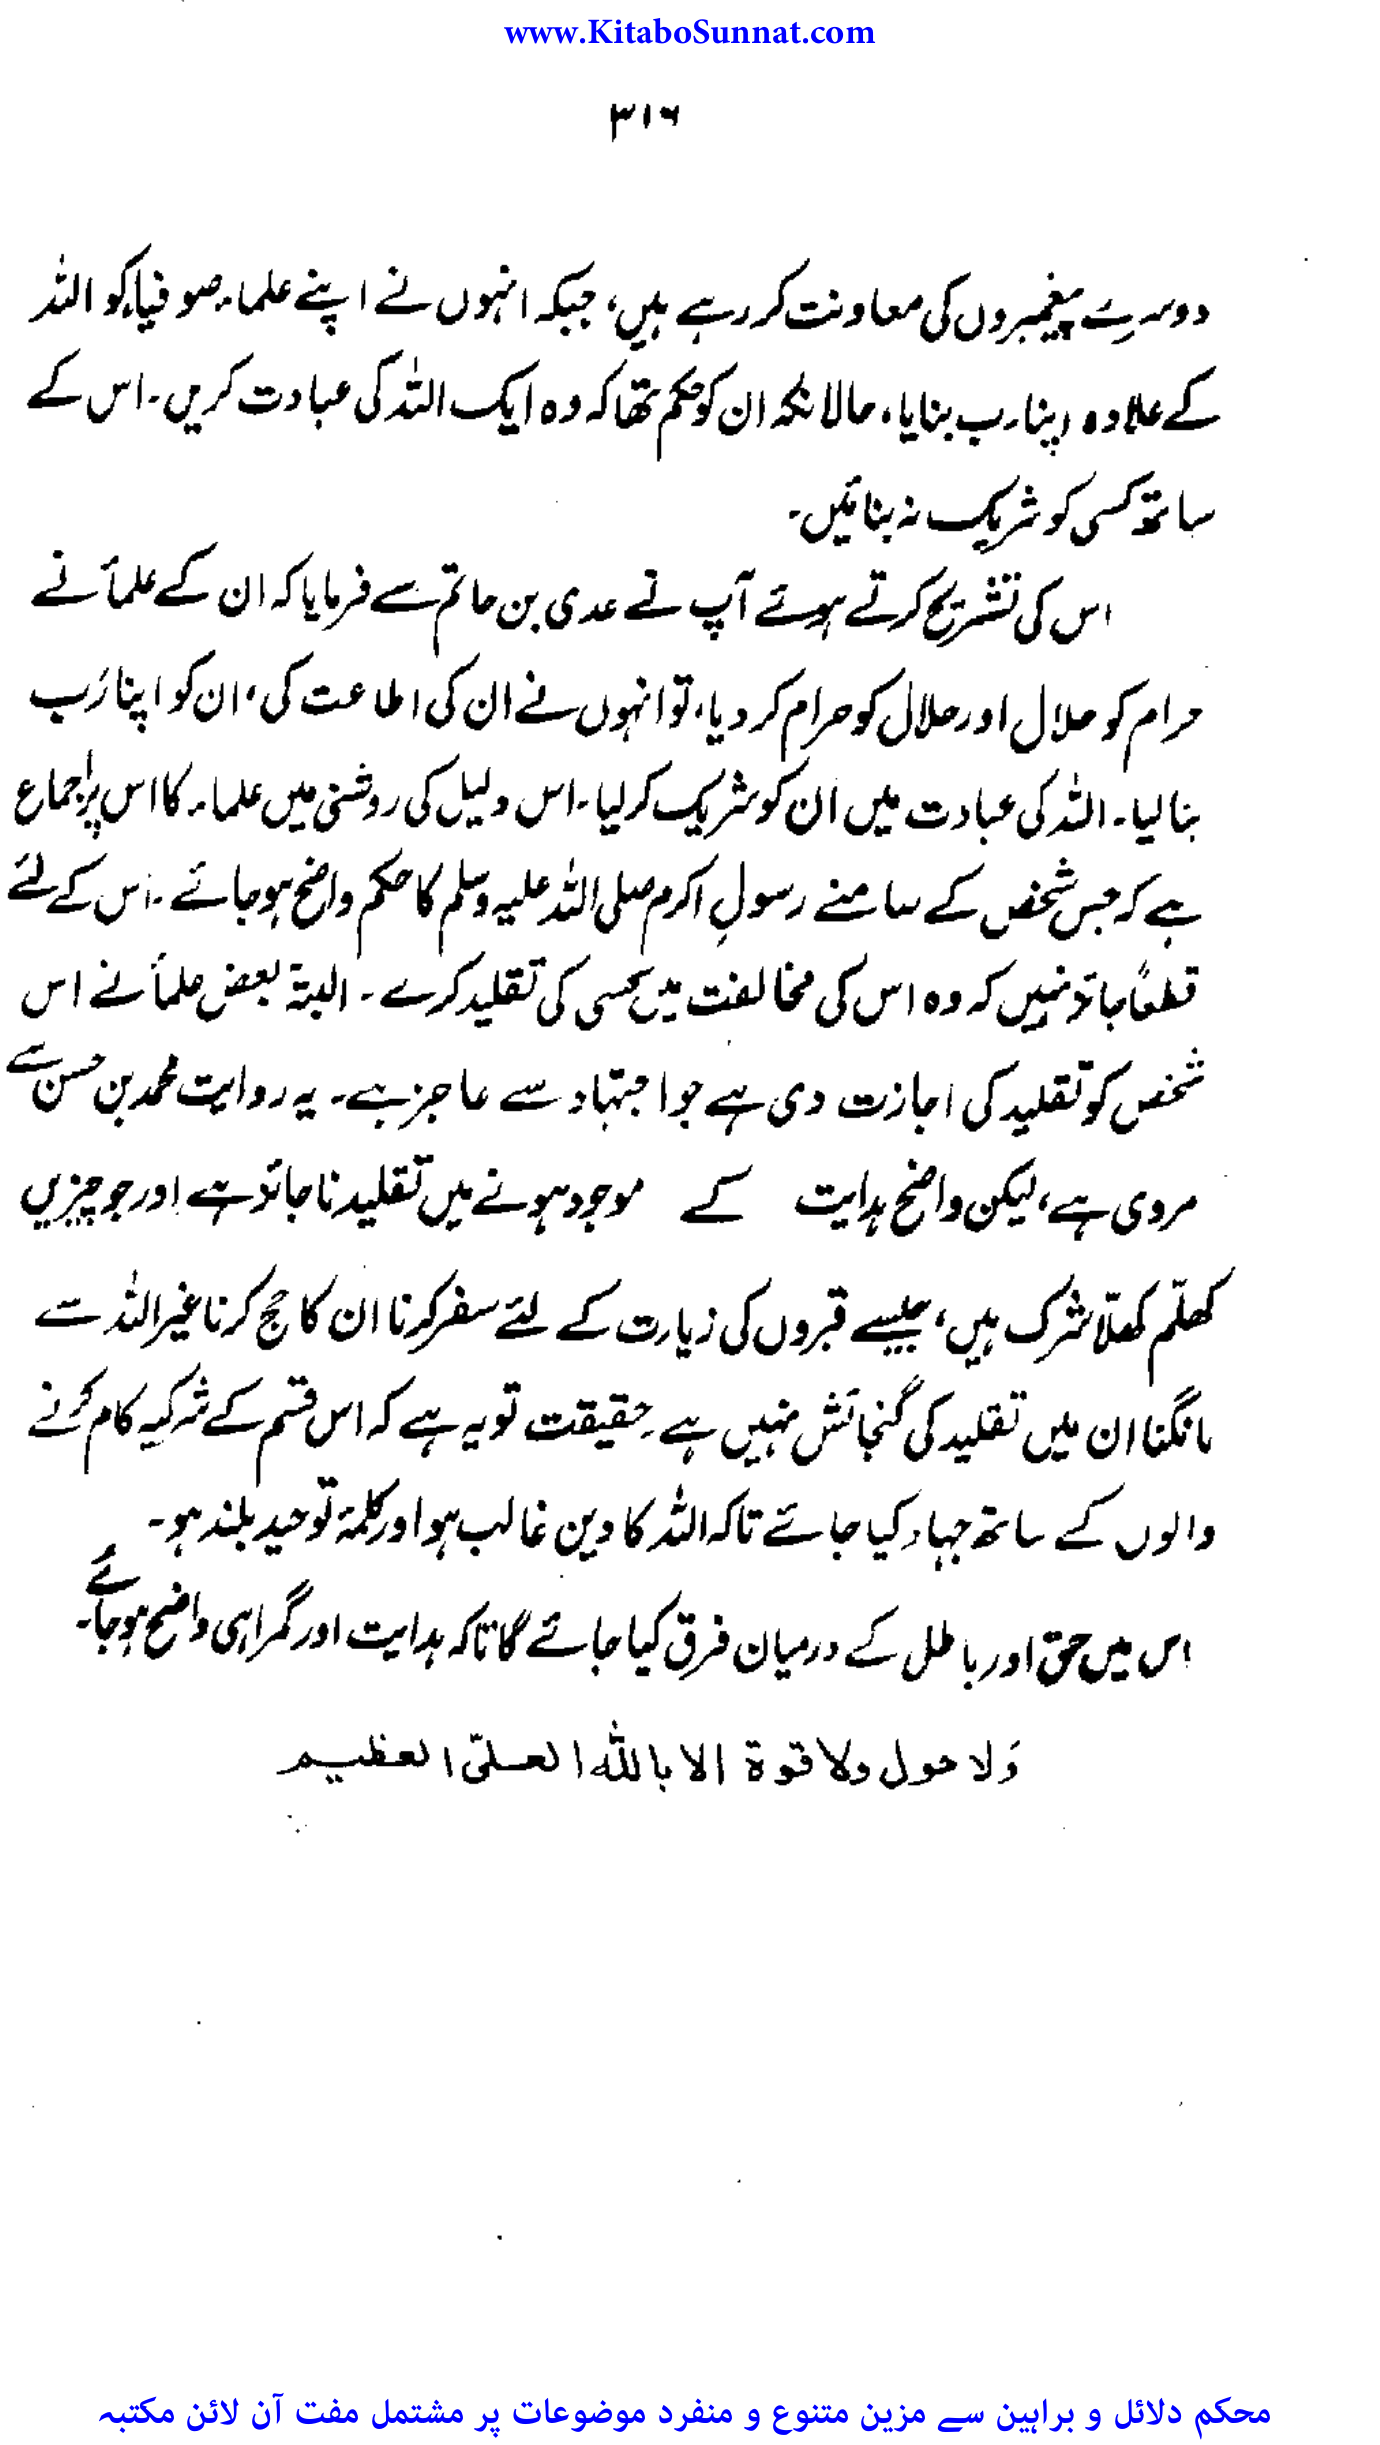 www.KitaboSunnat.com
۳۱۶
دوسرے پیغمبروں کی معاونت کر رہے ہیں، جبکہ انہوں نے اپنے علماء، صوفیاء کو اللہ
کے علاوہ اپنا رب بنایا، حالانکہ ان کو حکم تھا کہ وہ ایک اللہ کی عبادت کریں۔ اس کے
ساتھ کسی کو شریک نہ بنائیں۔
اس کی تشریح کرتے ہوئے آپ نے عدی بن حاتم سے فرمایا کہ ان کے علمأ نے
حرام کو حلال اور حلال کو حرام کر دیا، تو انہوں نے ان کی اطاعت کی، ان کو اپنا رَب
بنا لیا۔ اللہ کی عبادت میں ان کو شریک کر لیا۔ اس دلیل کی روشنی میں علماء کا اس پر اجماع
ہے کہ جس شخص کے سامنے رسولِ اکرم صلی اللہ علیہ وسلم کا حکم واضح ہو جائے۔ اس کے لئے
قطعاً جائز نہیں کہ وہ اس کی مخالفت میں کسی کی تقلید کرے۔ البتہ بعض علمأ نے اس
شخص کو تقلید کی اجازت دی ہے جو اجتہاد سے عاجز ہے۔ یہ روایت محمد بن حسن سے
مروی ہے، لیکن واضح ہدایت کے موجود ہونے میں تقلید ناجائز ہے اور جو چیزیں
کھلّم کھلّا شرک ہیں، جیسے قبروں کی زیارت کے لئے سفر کرنا ان کا حج کرنا غیر اللہ سے
مانگنا ان میں تقلید کی گنجائش نہیں ہے۔ حقیقت تو یہ ہے کہ اس قسم کے شرکیہ کام کرنے
والوں کے ساتھ جہاد کیا جائے تاکہ اللہ کا دین غالب ہو اور کلمۂ توحید بلند ہو۔
اس میں حق اور باطل کے درمیان فرق کیا جائے گا تاکہ ہدایت اور گمراہی واضح ہو جائے۔
وَلا حول ولا قوة الا باللّٰہ العلیّ العظیم
محکم دلائل و براہین سے مزین متنوع و منفرد موضوعات پر مشتمل مفت آن لائن مکتبہ